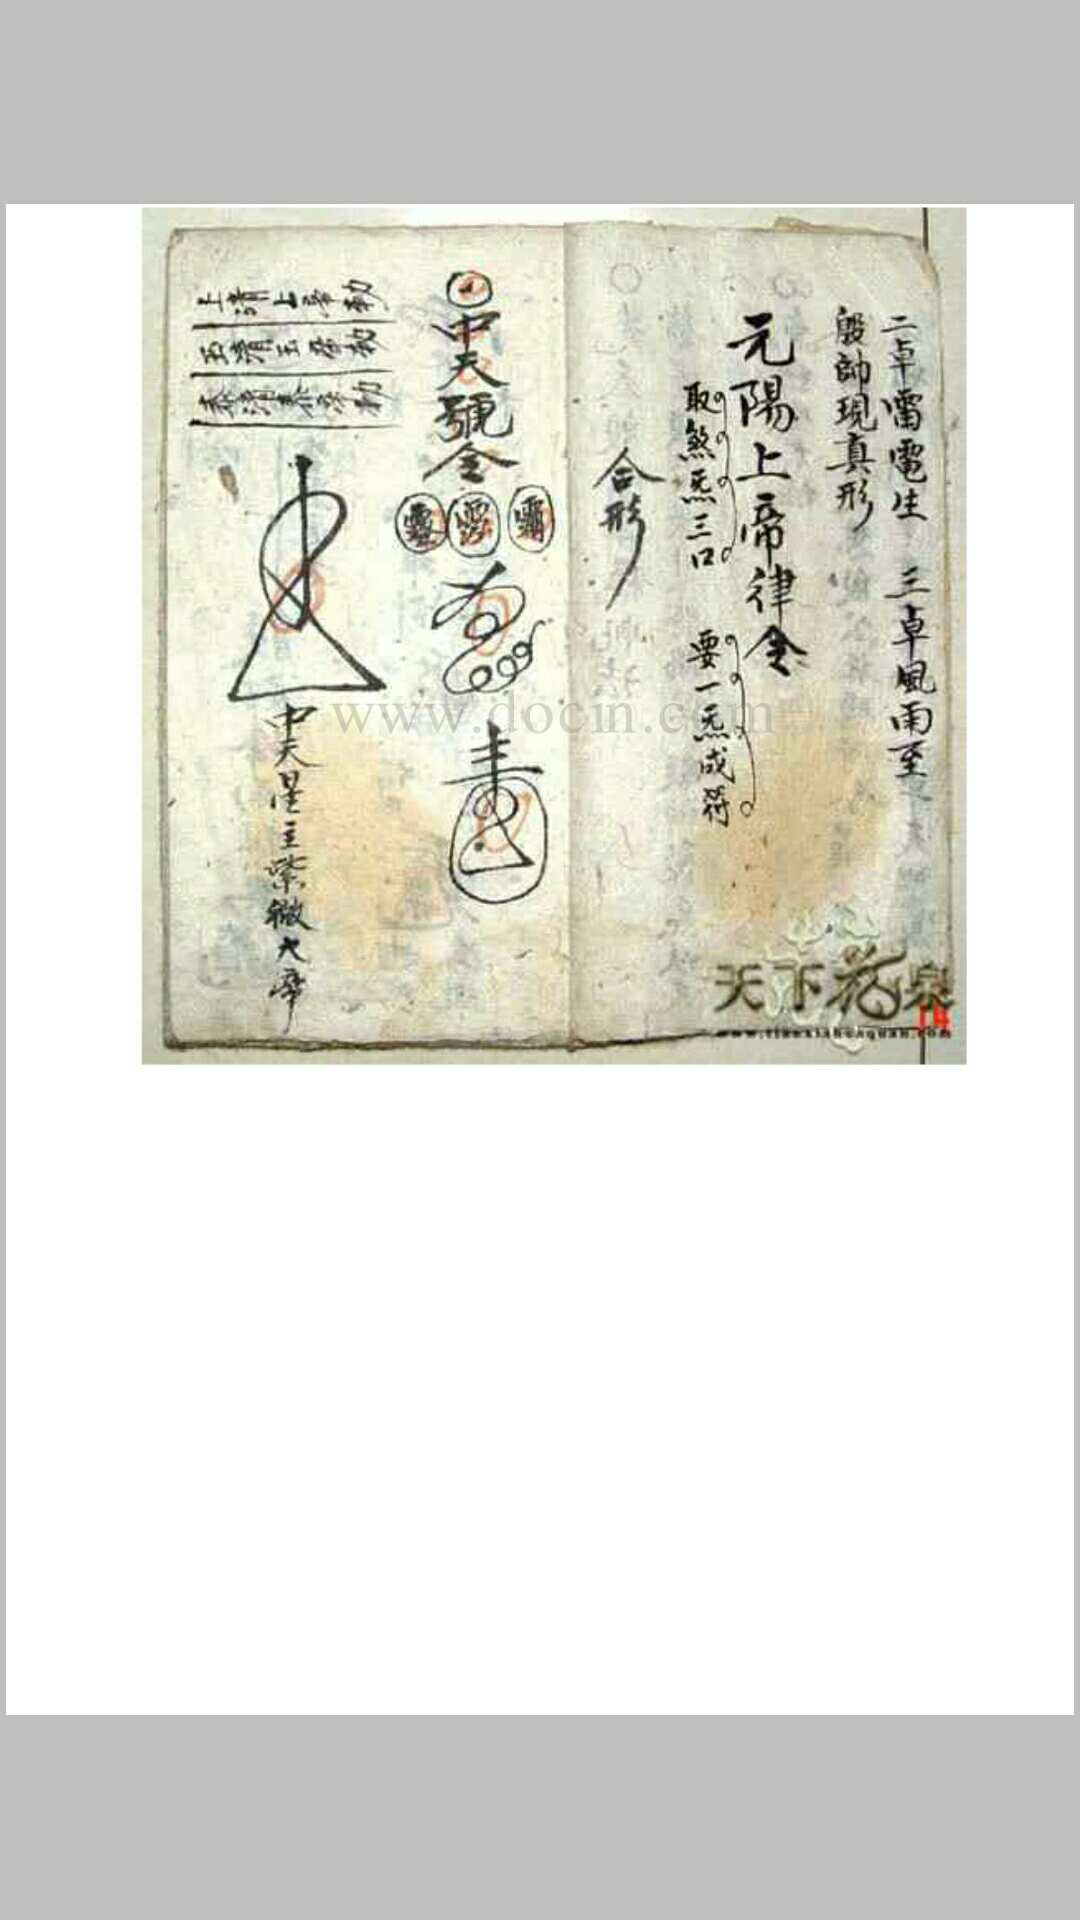 二卓雷電生　三卓風雨至
殷帥現真形
元陽上帝律令
取煞炁三口　要一炁成符
合形
中天號令
上清上帝勅
玉清玉帝勅
泰清泰帝勅
中天星主紫微大帝
www.docin.com
天下花泉